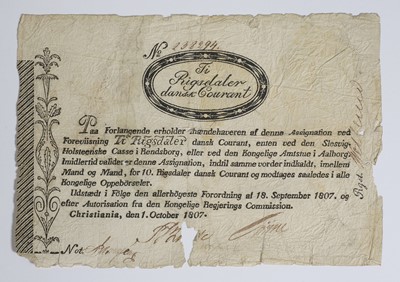 No
Ti
Rigsdaler
dansk Courant
Paa Forlangende erholder Ihændehaveren af denne Assignation ved
Foreviisning Ti Rigsdaler dansk Courant, enten ved den Slesvig-
Holsteenske Casse i Rendsborg, eller ved den Kongelige Amtstue i Aalborg.
Imidlertid valider denne Assignation, indtil samme vorder indhaldt, imellem
Mand og Mand, for 10. Rigsdaler dansk Courant og modtages saaledes i alle
Kongelige Oppebörseler.
Udstædt i Fölge den allerhöyeste Forordning af 18. September 1807. og
efter Autorisation fra den Kongelige Regjerings Commission.
Christiania, den 1. October 1807.
Not.